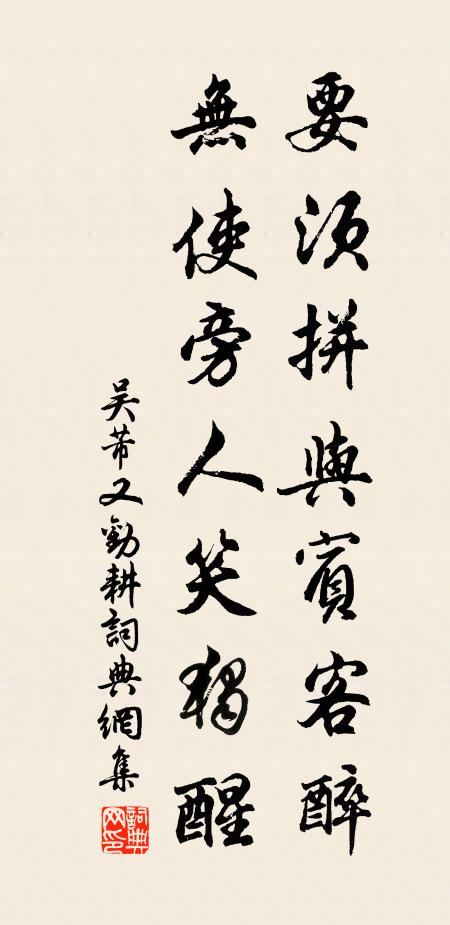 要須拼與賓客醉
無使旁人笑獨醒
吳芾又勸耕詞典網集
詞典网印